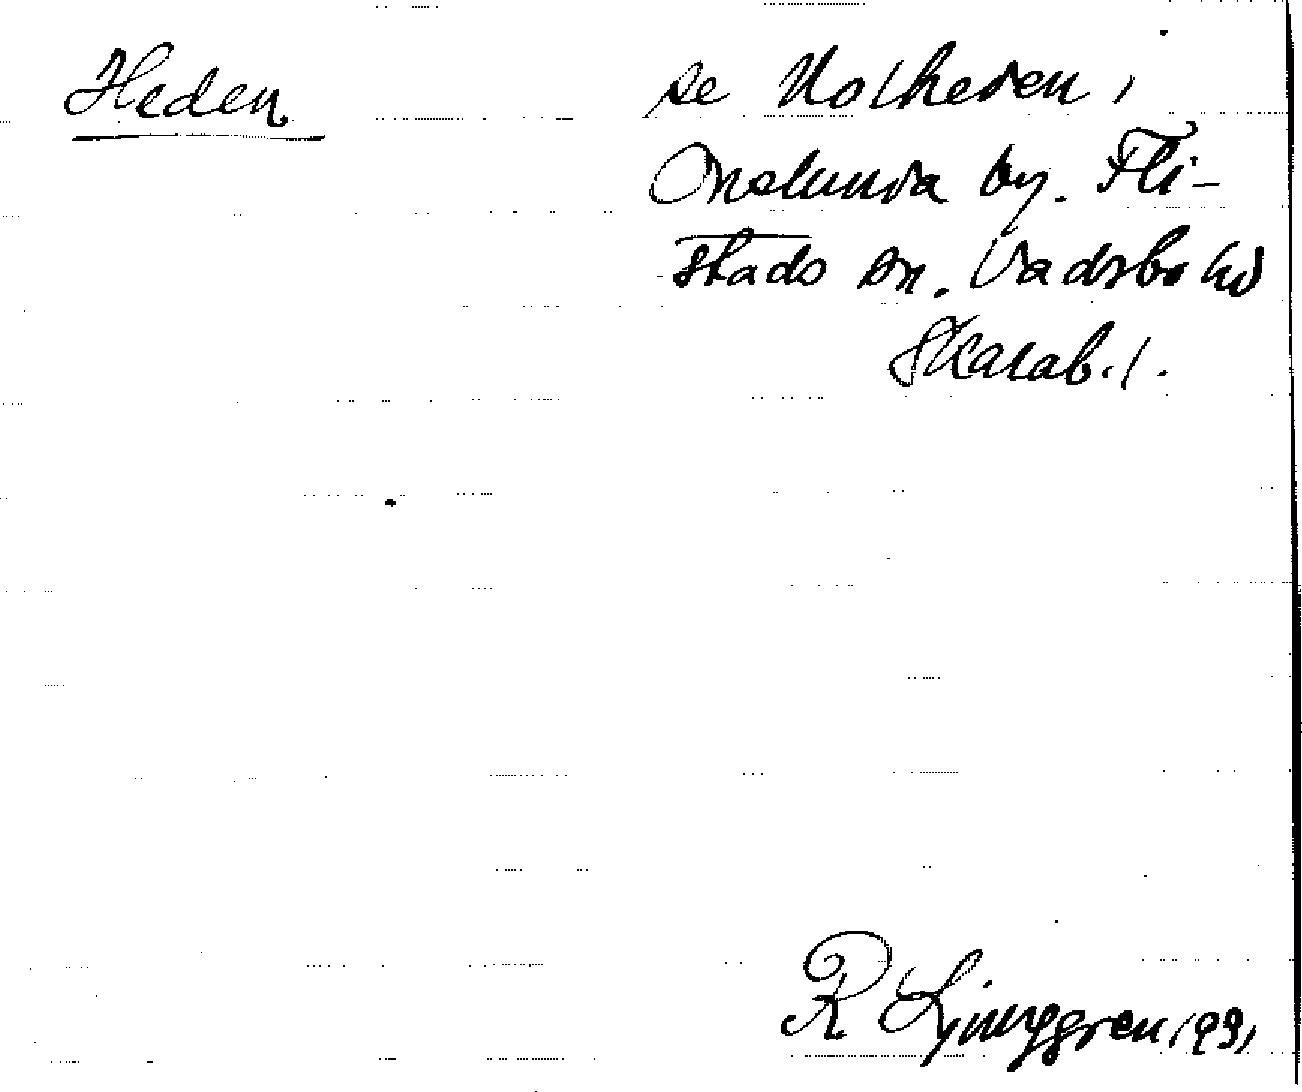 Heden
se Kolheden,
Onslunda by. Fli-
stads sn. Vadsbo hd
Skarab. l.
R Ljunggren 1931